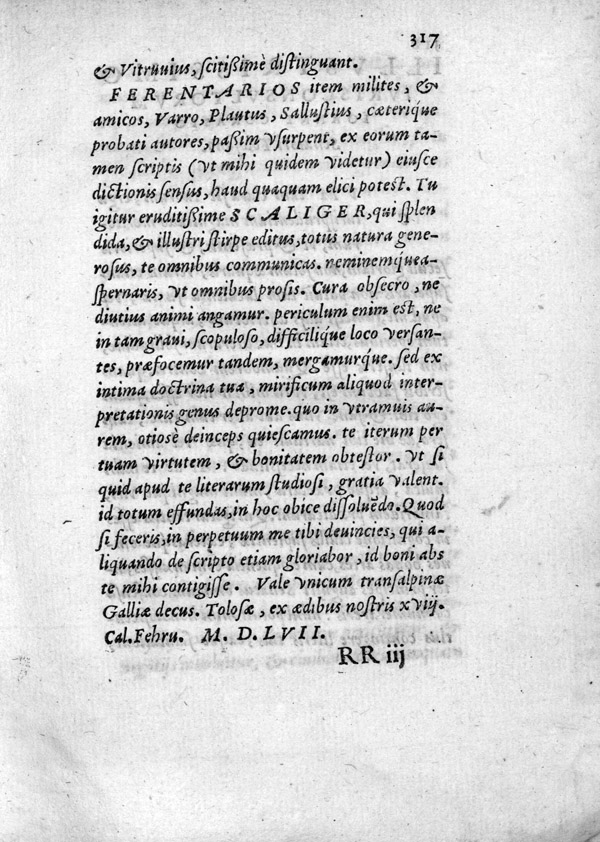 317
& Vitruvius, scitißimè distinguant.
FERENTARIOS item milites, &
amicos, Varro, Plautus, Sallustius, cæterique
probati autores, paßim vsurpent, ex eorum ta-
men scriptis (vt mihi quidem videtur) eiusce
dictionis sensus, haud quaquam elici potest. Tu
igitur eruditißime SCALIGER, qui splen
dida, & illustri stirpe editus, totus natura gene-
rosus, te omnibus communicas. neminemque a-
spernaris, vt omnibus prosis. Cura obsecro, ne
diutius animi angamur. periculum enim est, ne
in tam graui, scopuloso, difficilique loco versan-
tes, præfocemur tandem, mergamurque. sed ex
intima doctrina tua, mirificum aliquod inter-
pretationis genus deprome. quo in vtramuis au-
rem, otiosè deinceps quiescamus. te iterum per
tuam virtutem, & bonitatem obtestor. vt si
quid apud te literarum studiosi, gratia valent.
id totum effundas, in hoc obice dissoluẽdo. Quod
si feceris, in perpetuum me tibi deuincies, qui a-
liquando de scripto etiam gloriabor, id boni abs
te mihi contigisse. Vale vnicum transalpinæ
Galliæ decus. Tolosæ, ex ædibus nostris xviij.
Cal. Febru. M. D. LVII.
RR iij